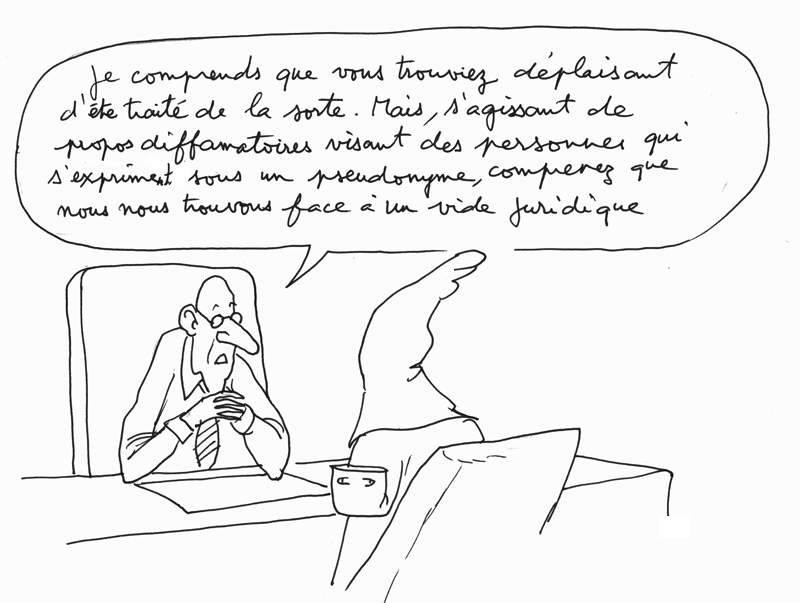 Je comprends que vous trouviez déplaisant
d'être traité de la sorte. Mais, s'agissant de
propos diffamatoires visant des personnes qui
s'expriment sous un pseudonyme, comprenez que
nous nous trouvons face à un vide juridique